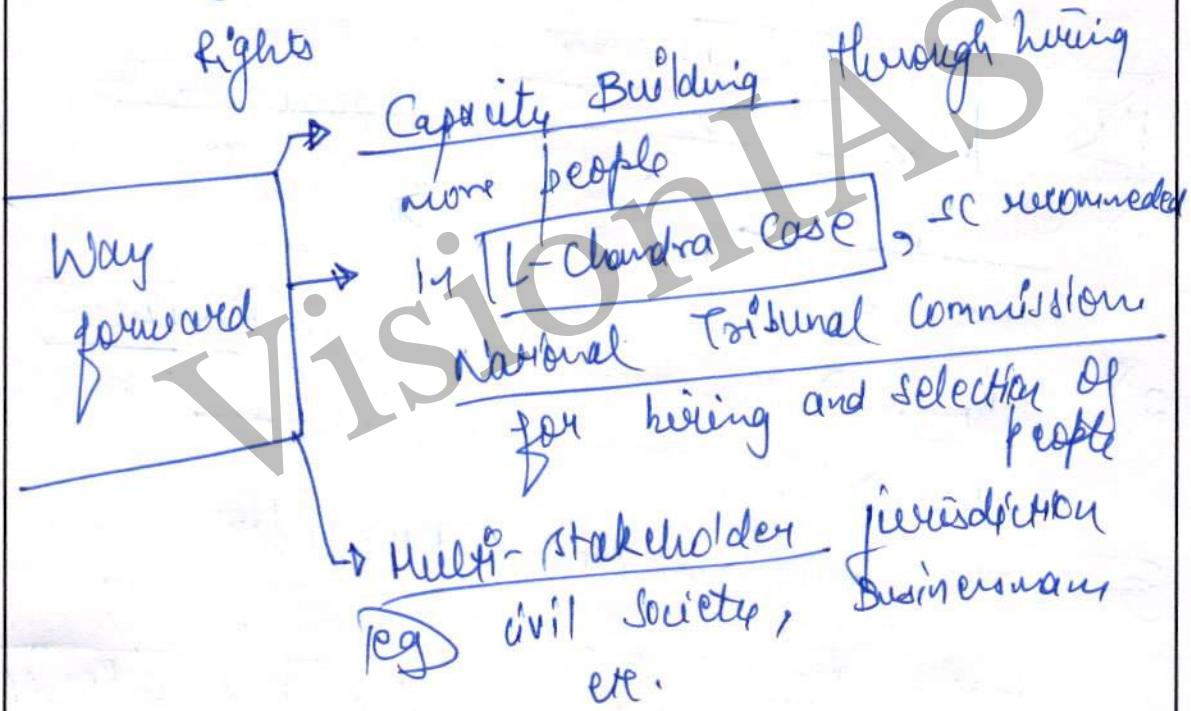 Rights
Capacity Building through hiring
more people
Way
forward
In L-Chandra Case, SC recommeded
National Tribunal Commission
for hiring and selection of
people
Multi-stakeholder jurisdiction
eg civil Society, Businessmans
etc.
VisionIAS